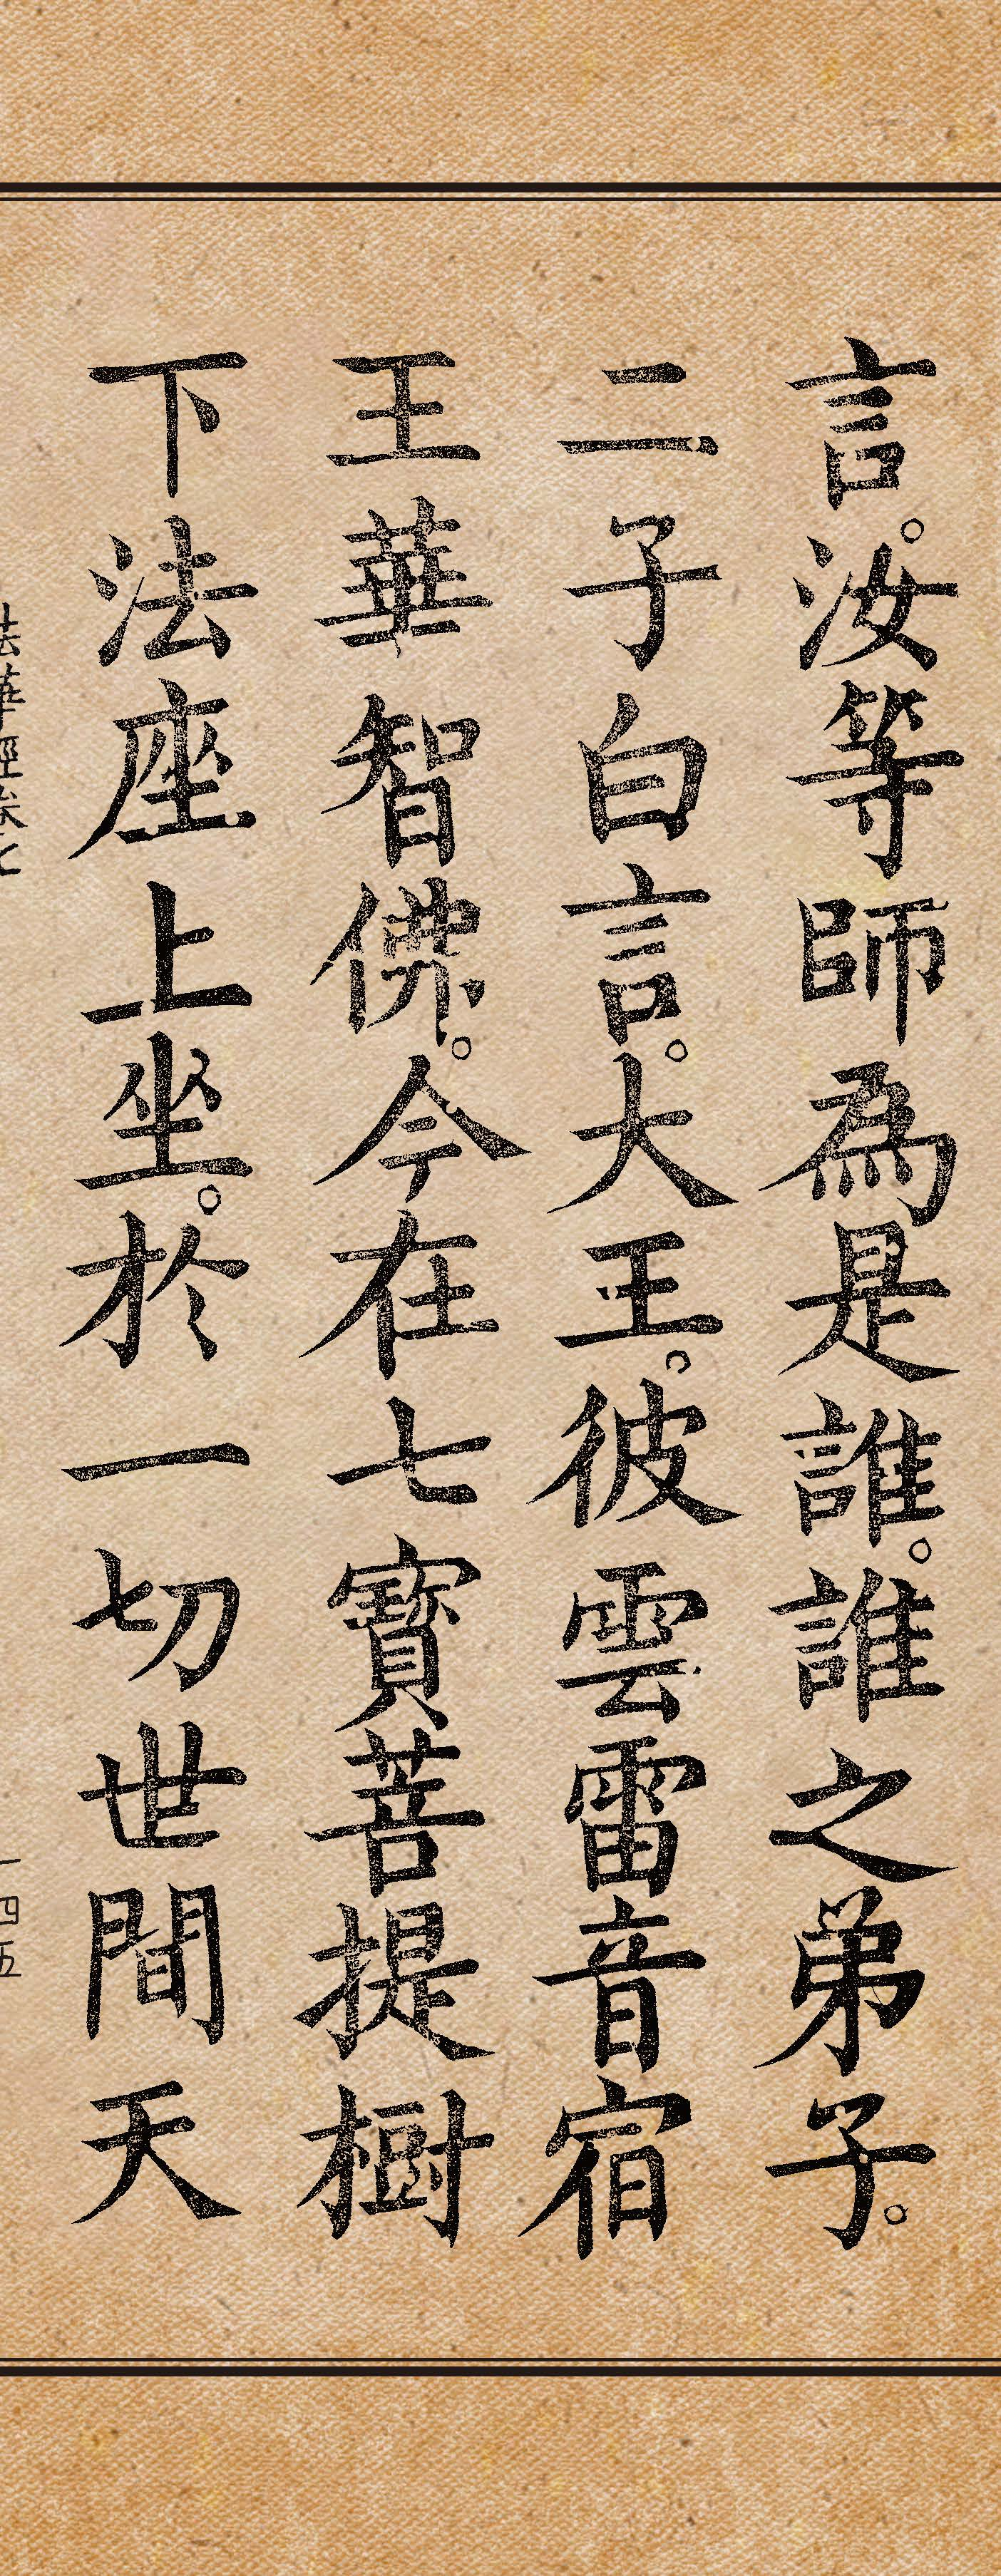 言。汝等師為是誰。誰之弟子。
二子白言。大王。彼雲雷音宿
王華智佛。今在七寶菩提樹
下法座上坐。於一切世間天
法華經卷七
一四五